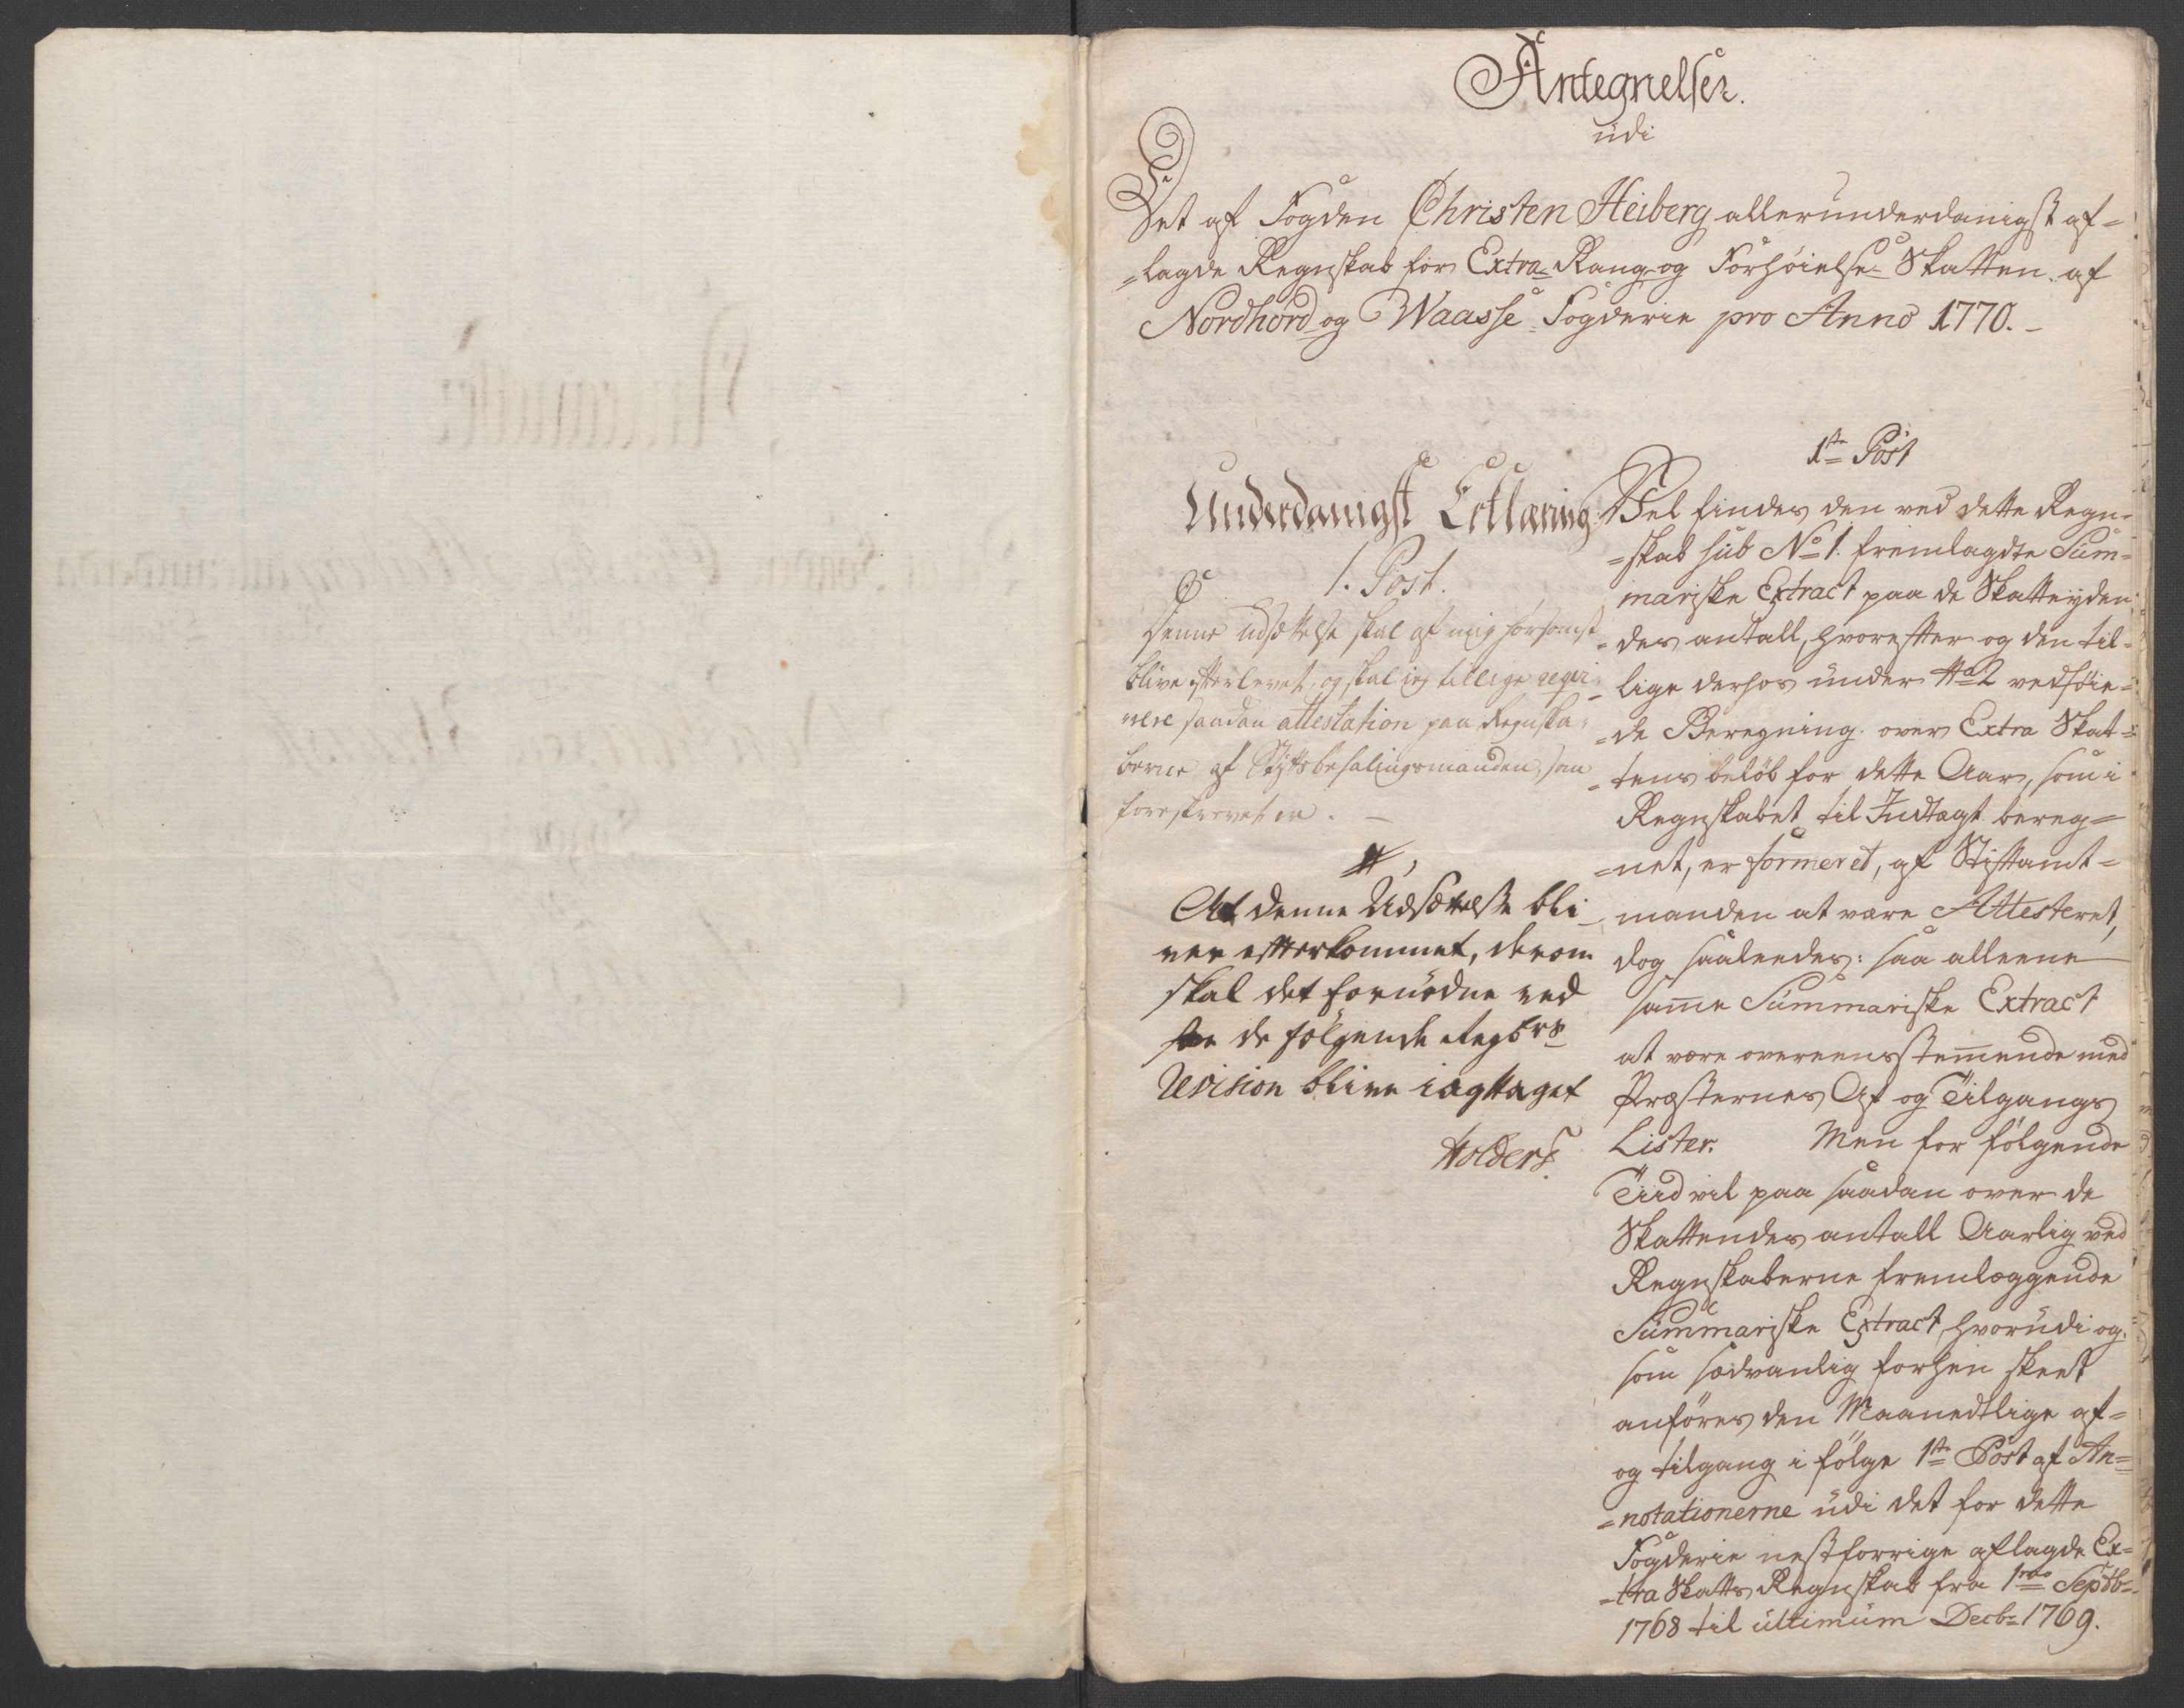 Antegnelser.
udi
Det af Fogden Christen Heiberg allerunderdanigst af=
=lagde Regnskab for Extra- Rang- og Forhøielse- Skatten af
Nordhord- og Waasse Fogderie pro Anno 1770.-
Underdanigst Erklæring
1. Post.
Denne udsættelse skal af mig hørsomst
blive efterlevet, og skal jeg tillige reqvi-
rere saadan attestation paa Regnska-
berne af Stiftsbefalingsmanden, som
foreskrevet er. -
At denne Udsættelse bli
ver efterkommet, derom
skal det fornødne ved
de følgende Regbrs
Revision blive iagttaget
Holders.
1ste Post
Vel findes den ved dette Regn-
=skab sub No 1. fremlagdte Sum=
mariske Extract paa de Skatteyden
=des antall, hvorefter og den til=
lige derhos under No 2 vedføie=
=de Beregning over Extra Skat=
=tens beløb for dette Aar, som i
Regnskabet til Indtægt bereg=
=net, er formeret, af Stiftamt=
manden at være Attesteret,
dog saaleedes: saa alleene
samme Summariske Extract
at være overeensstemmende med
Præsternes Af og Tilgangs
Lister. Men for følgende
Tiid vil paa saadan over de
Skattendes antall Aarlig ved
Regnskaberne fremlæggende
Summariske Extract, hvorudi og
som sædvanlig forhen skeet
anføres den Maanedtlige af=
og tilgang i følge 1ste Post af An=
=notationerne udi det for dette
Fogderie nestforrige aflagde Ex=
=tra Skatts Regnskab fra 1mo Septb=
1768 til ultimum Decbr 1769.